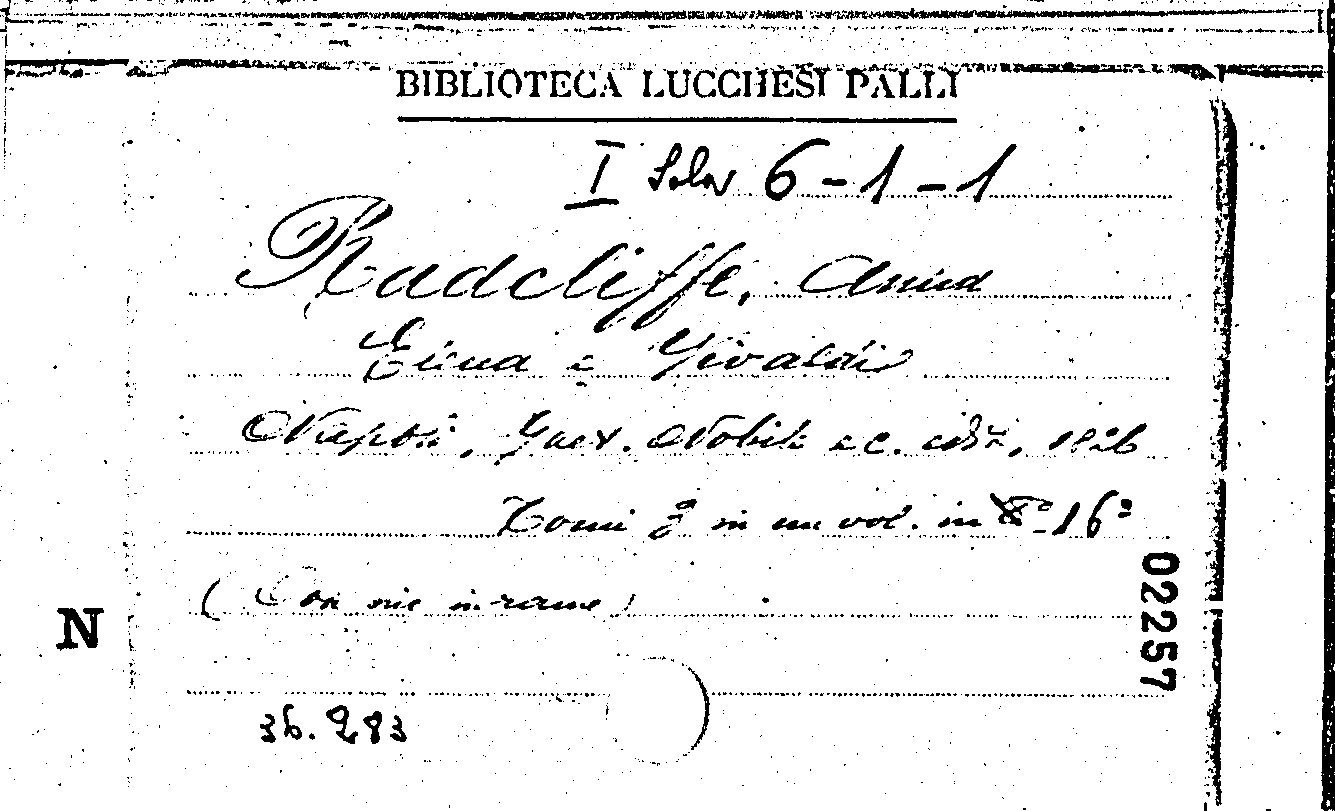 BIBLIOTECA LUCCHESI PALLI
I Sala 6-1-1
Radcliffe, Anna
Elena e Vivaldi
Napoli, Gaet. Nobile e c. ediz., 1826
Tomi 3 in un vol. in 16º
(Con inc. in rame)
N
02257
36.283